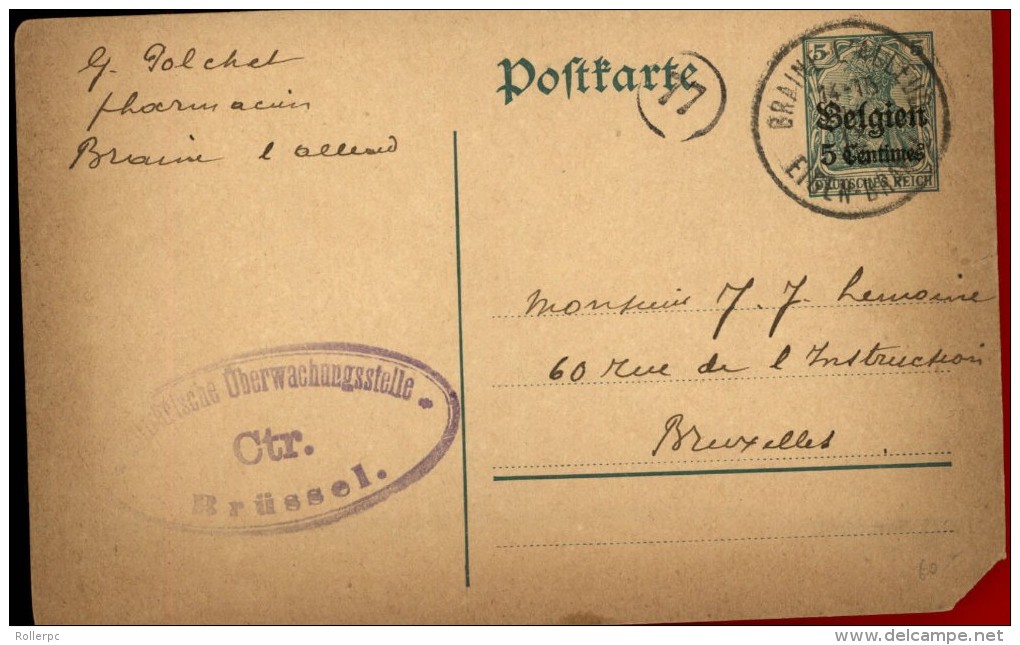 G. Polchet
pharmacien
Braine l'alleud
Postkarte
77
5 5
Belgien
5 Centimes
DEUTSCHES REICH
BRAINE-L'ALLEUD
EIGEN-BRAKEL
Monsieur J. J. Lemoine
60 rue de l'Instruction
Bruxelles
Deutsche Überwachungsstelle
Ctr.
Brüssel.
60
Rollerpc
delcampe.net